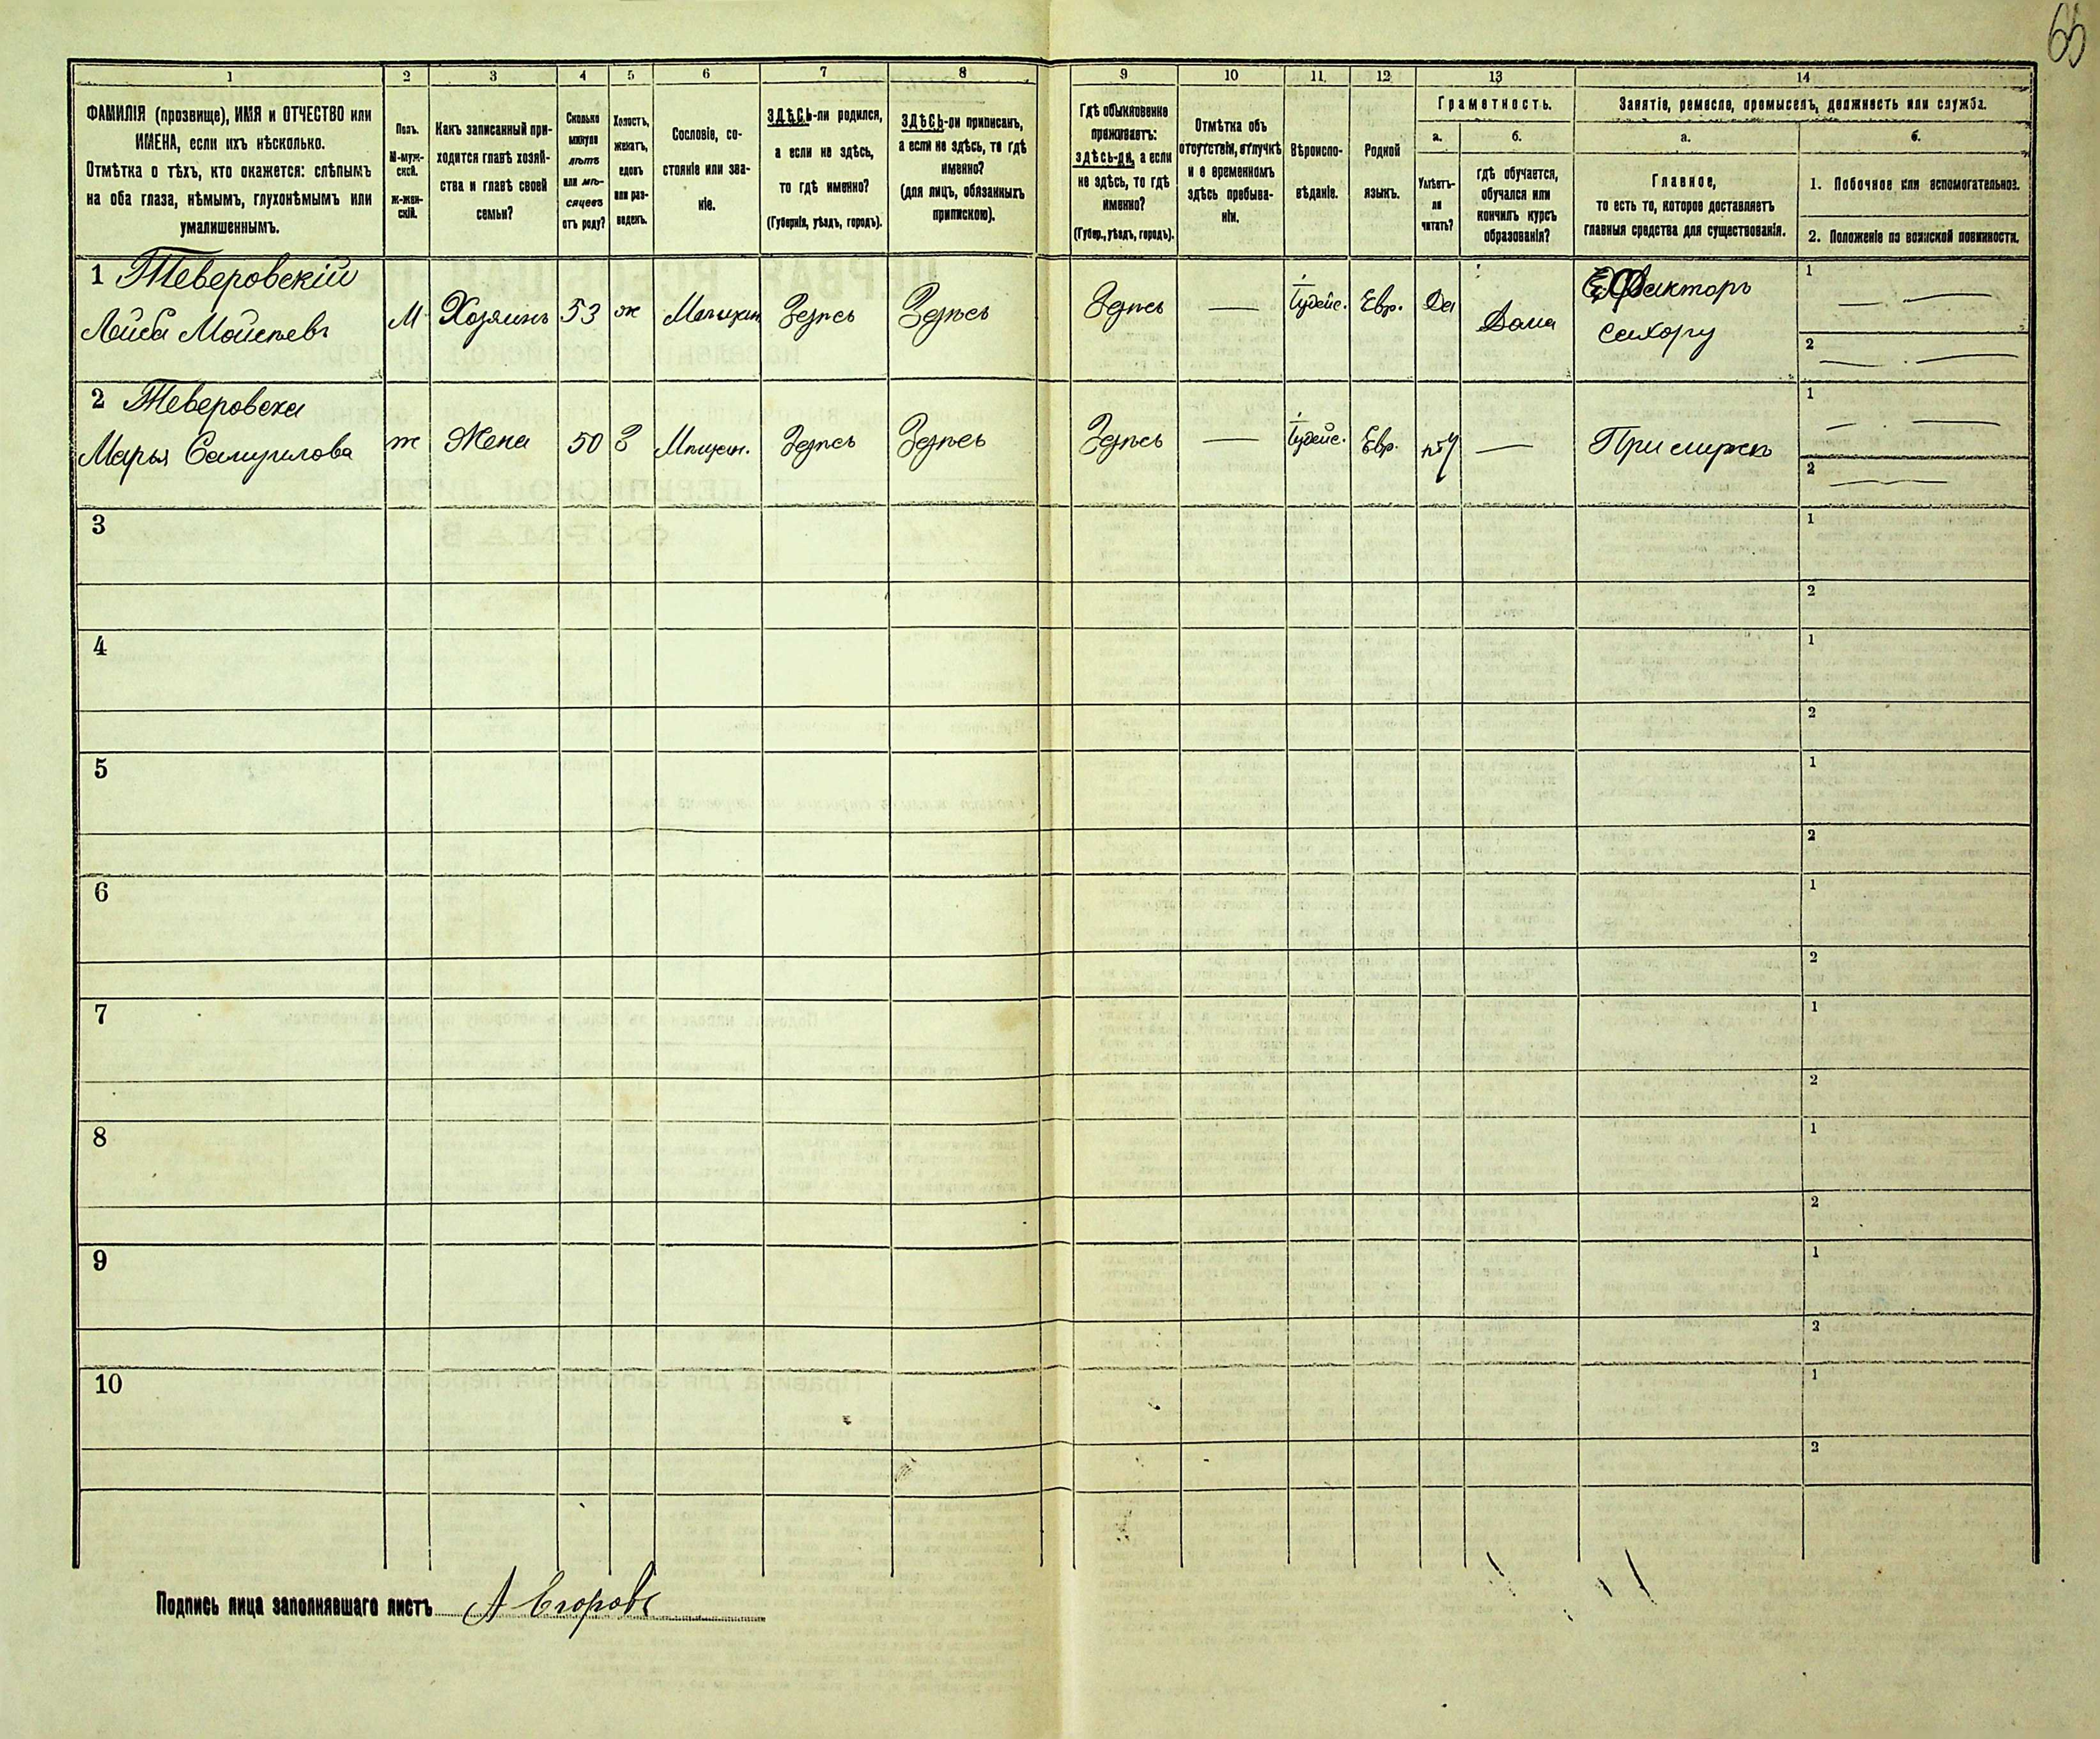 65
1 2 3 4 5 6 7 8 9 10 11. 12. 13 14
ФАМИЛІЯ (прозвище), ИМЯ и ОТЧЕСТВО или
ИМЕНА, если ихъ нѣсколько.
Отмѣтка о тѣхъ, кто окажется: слѣпымъ
на оба глаза, нѣмымъ, глухонѣмымъ или
умалишеннымъ.
Полъ.
М-муж-
ской.
Ж-жен-
скій.
Какъ записанный при-
ходится главѣ хозяй-
ства и главѣ своей
семьи?
Сколько
минуло
лѣтъ
или мѣ-
сяцевъ
отъ роду?
Холостъ,
женатъ,
вдовъ
или раз-
веденъ.
Сословіе, со-
стояніе или зва-
ніе.
ЗДѢСЬ-ли родился,
а если не здѣсь,
то гдѣ именно?
(Губернія, уѣздъ, городъ).
ЗДѢСЬ-ли приписанъ,
а если не здѣсь, то гдѣ
именно?
(для лицъ, обязанныхъ
припискою).
Гдѣ обыкновенно
проживаетъ:
здѣсь-ли, а если
не здѣсь, то гдѣ
именно?
(Губер., уѣздъ, городъ).
Отмѣтка объ
отсутствіи, отлучкѣ
и о временномъ
здѣсь пребыва-
ніи.
Вѣроиспо-
вѣданіе.
Родной
языкъ.
Грамотность.
а.
Умѣетъ-
ли
читать?
б.
гдѣ обучается,
обучался или
кончилъ курсъ
образованія?
Занятіе, ремесло, промыселъ, должность или служба.
а.
Главное,
то есть то, которое доставляетъ
главныя средства для существованія.
б.
1. Побочное или вспомогательное.
2. Положеніе по воинской повинности.
1 Теверовскій
Лейба Мойсѣевъ
М Хозяинъ 53 ж Мѣщан Здѣсь Здѣсь Здѣсь — Іудейс. Евр. Да Дома
Факторъ
1 — —
2 — —
2 Теверовска
Марья Самуилова
ж Жена 50 З Мѣщан. Здѣсь Здѣсь Здѣсь — Іудейс. Евр. — При мужѣ
1 — —
2 —
3 1
2
4 1
2
5 1
2
6 1
2
7 1
2
8 1
2
9 1
2
10 1
2
Подпись лица заполнявшаго листъ А Егоровъ